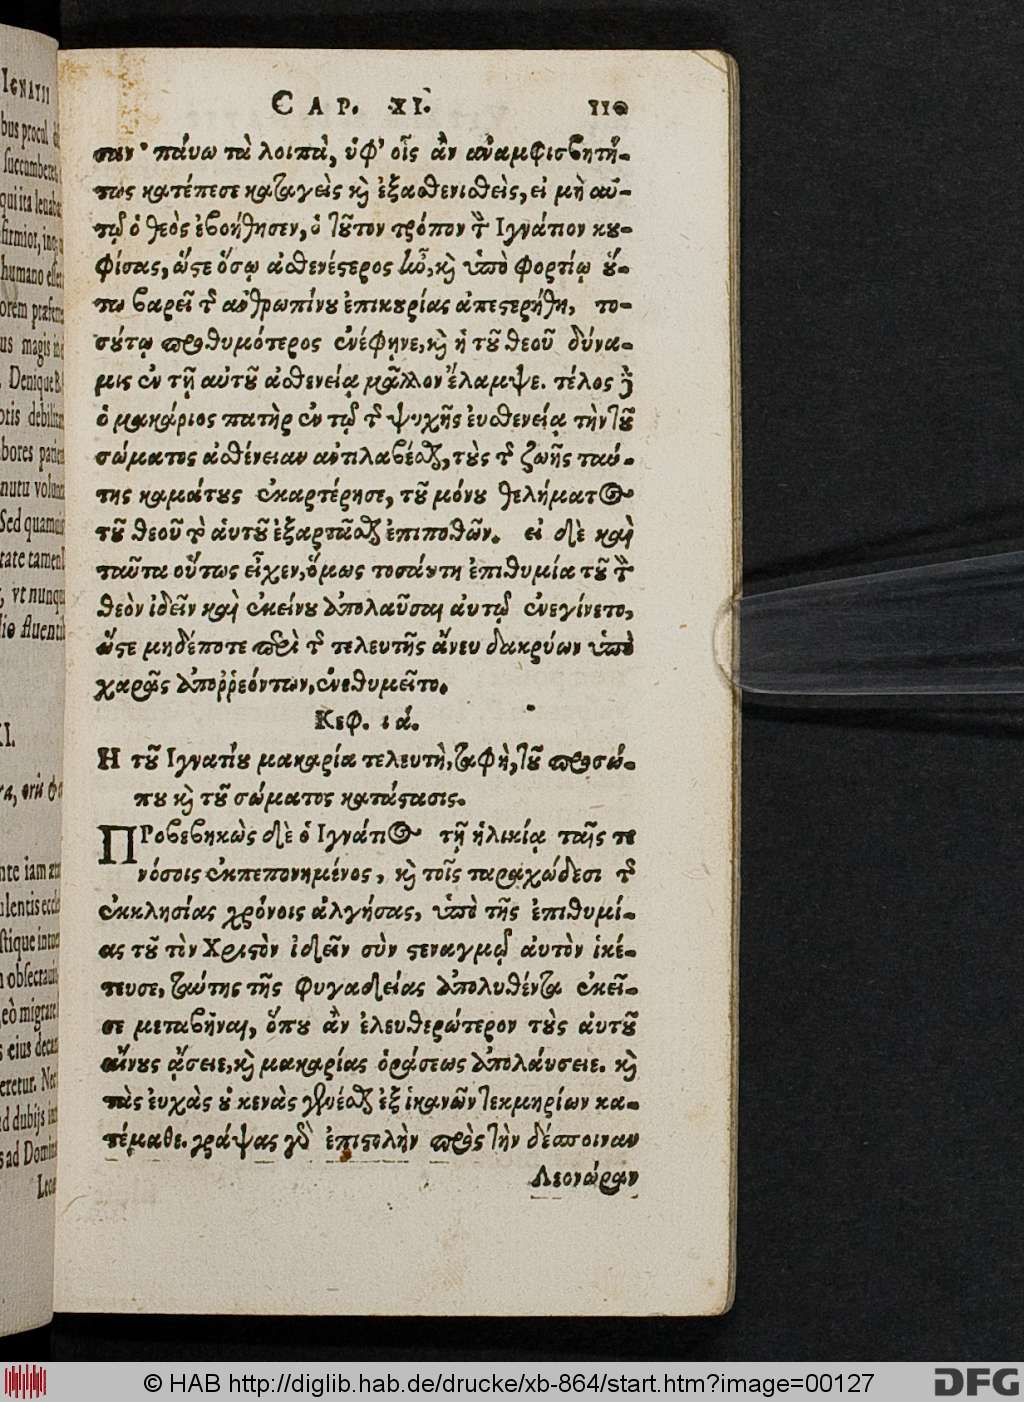 IGNATII
bus procul
succumberet
qui ita leuaba
firmior, in
humano esse
orem præ
us magis in
Denique B.
otis debilita
bores patien
nutu volun
Sed quamuis
tate tamen
, vt nunqu
fluenti
XI.
oris &
nte iam
ulentis eccle
stique intu
obsecrauit
eò migrare
eius decan
eretur. Nec
d dubijs in
s ad Domin
Leo
CAP. XI. 110
σαν· πάνω τὰ λοιπὰ, ὑφ' οἷς ἂν ἀναμφισβητή-
τως κατέπεσε καταγεὶς κὶ ἐξασθενισθεὶς, εἰ μὴ αὐ-
τῷ ὁ θεὸς ἐβοήθησεν, ὁ τοῦτον τρόπον τ Ἰγνάτιον κου-
φίσας, ὥστε ὅσῳ ἀσθενέστερος ἦν, κὶ ὑπὸ φορτίῳ οὕ-
τω βαρεῖ τ ἀνθρωπίνου ἐπικουρίας ἀπεστερήθη, το-
σούτῳ προθυμότερος ἐνέφηνε, κὶ ἡ τοῦ θεοῦ δύνα-
μις ἐν τῇ αὐτοῦ ἀσθενείᾳ μᾶλλον ἔλαμψε. τέλος δὲ
ὁ μακάριος πατὴρ ἐν τῷ τ ψυχῆς εὐσθενείᾳ τὴν τοῦ
σώματος ἀσθένειαν ἀντιλαβέσθαι, τοὺς τ ζωῆς ταύ-
της καμάτους ἐκαρτέρησε, τοῦ μόνου θελήματος
τοῦ θεοῦ τὸ ἑαυτοῦ ἐξαρτᾶσθαι ἐπιποθῶν. εἰ δὲ καὶ
ταῦτα οὕτως εἶχεν, ὅμως τοσαύτη ἐπιθυμία τοῦ τ
θεὸν ἰδεῖν καὶ ἐκείνου ἀπολαῦσαι αὐτῷ ἐνεγίνετο,
ὥστε μηδέποτε περὶ τ τελευτῆς ἄνευ δακρύων ὑπὸ
χαρᾶς ἀποῤῥεόντων, ἐνεθυμεῖτο.
Κεφ. ιά.
Η τοῦ Ἰγνατίου μακαρία τελευτὴ, ταφὴ, τοῦ προσώ-
που κὶ τοῦ σώματος κατάστασις.
ΠΡοβεβηκὼς δὲ ὁ Ἰγνάτιος τῇ ἡλικίᾳ ταῖς τε
νόσοις ἐκπεπονημένος, κὶ τοῖς ταραχώδεσι τ
ἐκκλησίας χρόνοις ἀλγήσας, ὑπὸ τῆς ἐπιθυμί-
ας τοῦ τὸν Χριστὸν ἰδεῖν σὺν στεναγμῷ αὐτὸν ἱκέ-
τευσε, ταύτης τῆς φυγαδείας ἀπολυθέντα ἐκεῖ-
σε μεταβῆναι, ὅπου ἂν ἐλευθερώτερον τοὺς αὐτοῦ
αἴνους ᾄσειε, κὶ μακαρίας ὁράσεως ἀπολαύσειε. κὶ
τὰς εὐχὰς οὐ κενὰς γενέσθαι ἐξ ἱκανῶν τεκμηρίων κα-
τέμαθε. γράψας γὰρ ἐπιστολὴν πρὸς τὴν δέσποιναν
Λεονώραν
© HAB http://diglib.hab.de/drucke/xb-864/start.htm?image=00127
DFG